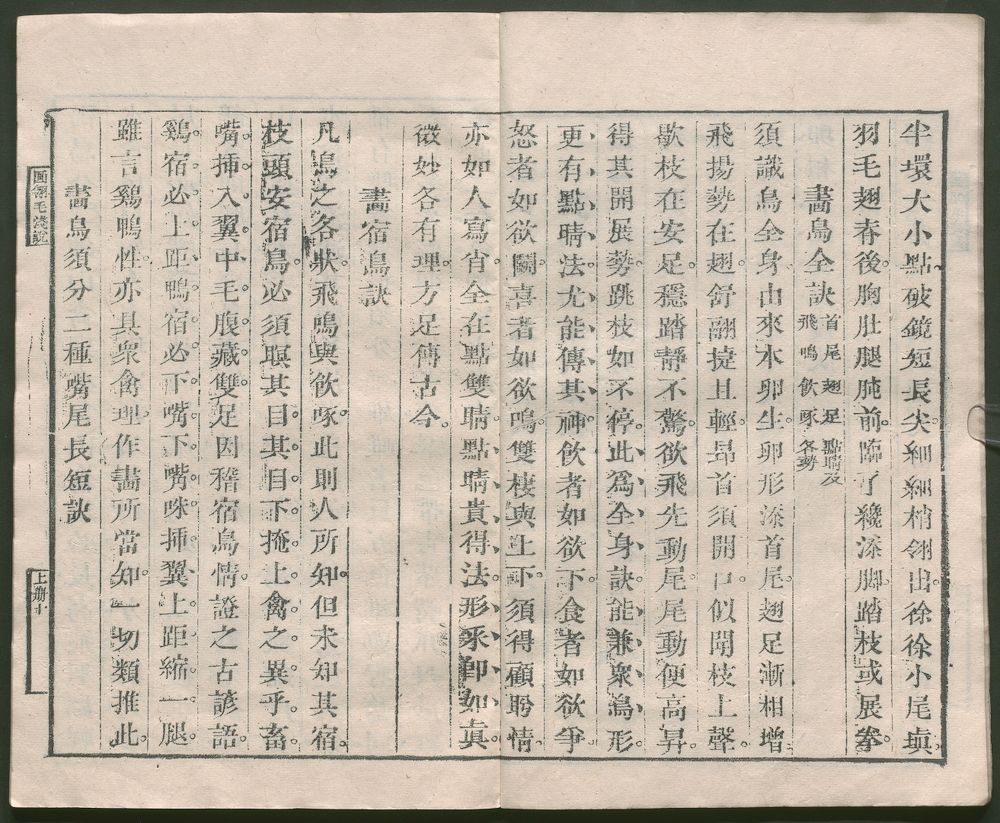 半環大小點破鏡短長尖細細梢翎出徐徐小尾塡
羽毛翅脊後胸肚腿肫前臨了纔添脚踏枝或展拳
畫鳥全訣首尾翅足點睛及飛鳴飲啄各勢
須識鳥全身由來本卵生卵形添首尾翅足漸相增
飛揚勢在翅舒翮捷且輕昻首須開口似聞枝上聲
歇枝在安足穩踏靜不驚欲飛先動尾尾動便高昇
得其開展勢跳枝如不停此爲全身訣能兼衆鳥形
更有點睛法尤能傳其神飲者如欲下食者如欲爭
怒者如欲鬭喜者如欲鳴雙棲與上下須得顧盻情
亦如人寫肖全在點雙睛點睛貴得法形采即如眞
微妙各有理方足傳古今
畫宿鳥訣
凡鳥之各狀飛鳴與飮啄此則人所知但未知其宿
枝頭安宿鳥必須瞑其目其目下掩上禽之異乎畜
嘴揷入翼中毛腹藏雙足因稽宿鳥情證之古諺語
鷄宿必上距鴨宿必下嘴下嘴咮揷翼上距縮一腿
雖言鷄鴨性亦具衆禽理作畫所當知一切類推此
畫鳥須分二種嘴尾長短訣
上册十